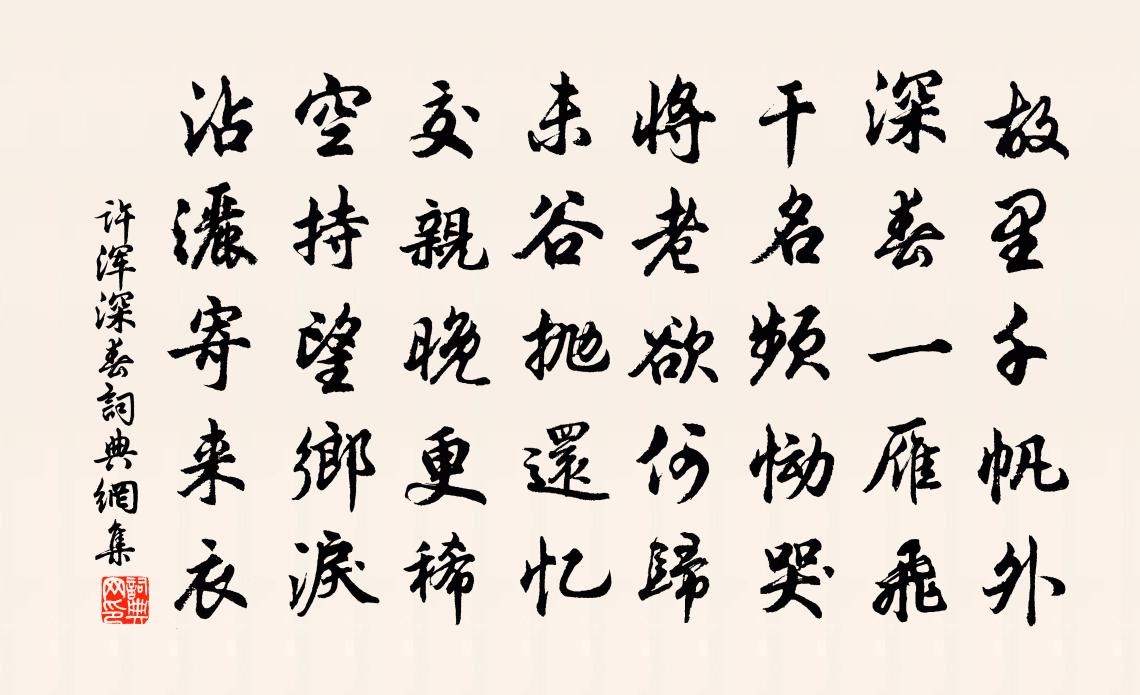 故里千帆外
深春一雁飛
干名頻慟哭
將老欲何歸
未谷抛還忆
交親晚更稀
空持望鄉淚
沾灑寄来衣
许浑深春詞典網集
詞典网印